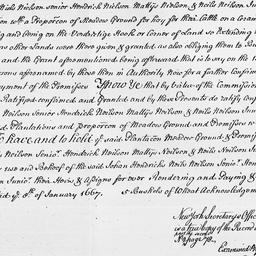 Niels Neilson senior Hendrick Neilson Mattys Neilson, & Neils Neilson Jun
on wth a Proporcon of Meadow Ground for Hay for their Cattle on a Cram
ing and being on the Verdritige Hook or Corner of land so Extending
ons other lands were then given & granted as also obliging them to
and the Grant aforementioned being afterward that is to say on the
sons aforenamed by those then in Authority Now for a further Confirm
oyment of the Premisses Know Ye that by virtue of the Commission
Ratifyed confirmed and Granted and by these Presents do ratify con
Neilson Senior Hendrick Neilson Mattys Neilson & Neils Neilson Jun
Plantations and proporcon of Meadow Ground and Premisses w
To have and to hold ye said Plantacon Meadow Ground & Premisses
Neilson Senior Hendrick Neilson Mattys Neilson, & Neils Neilson
use and Behoof of the said Hendrick Neils Neilson Senior
Junior their Heirs & Assigns for ever Rendering and Paying
ed ye 8th of January 1667. Bushels of Wheat Acknowledgm
New York Secretarys Office
is a true Copy of the Record
page
Examined